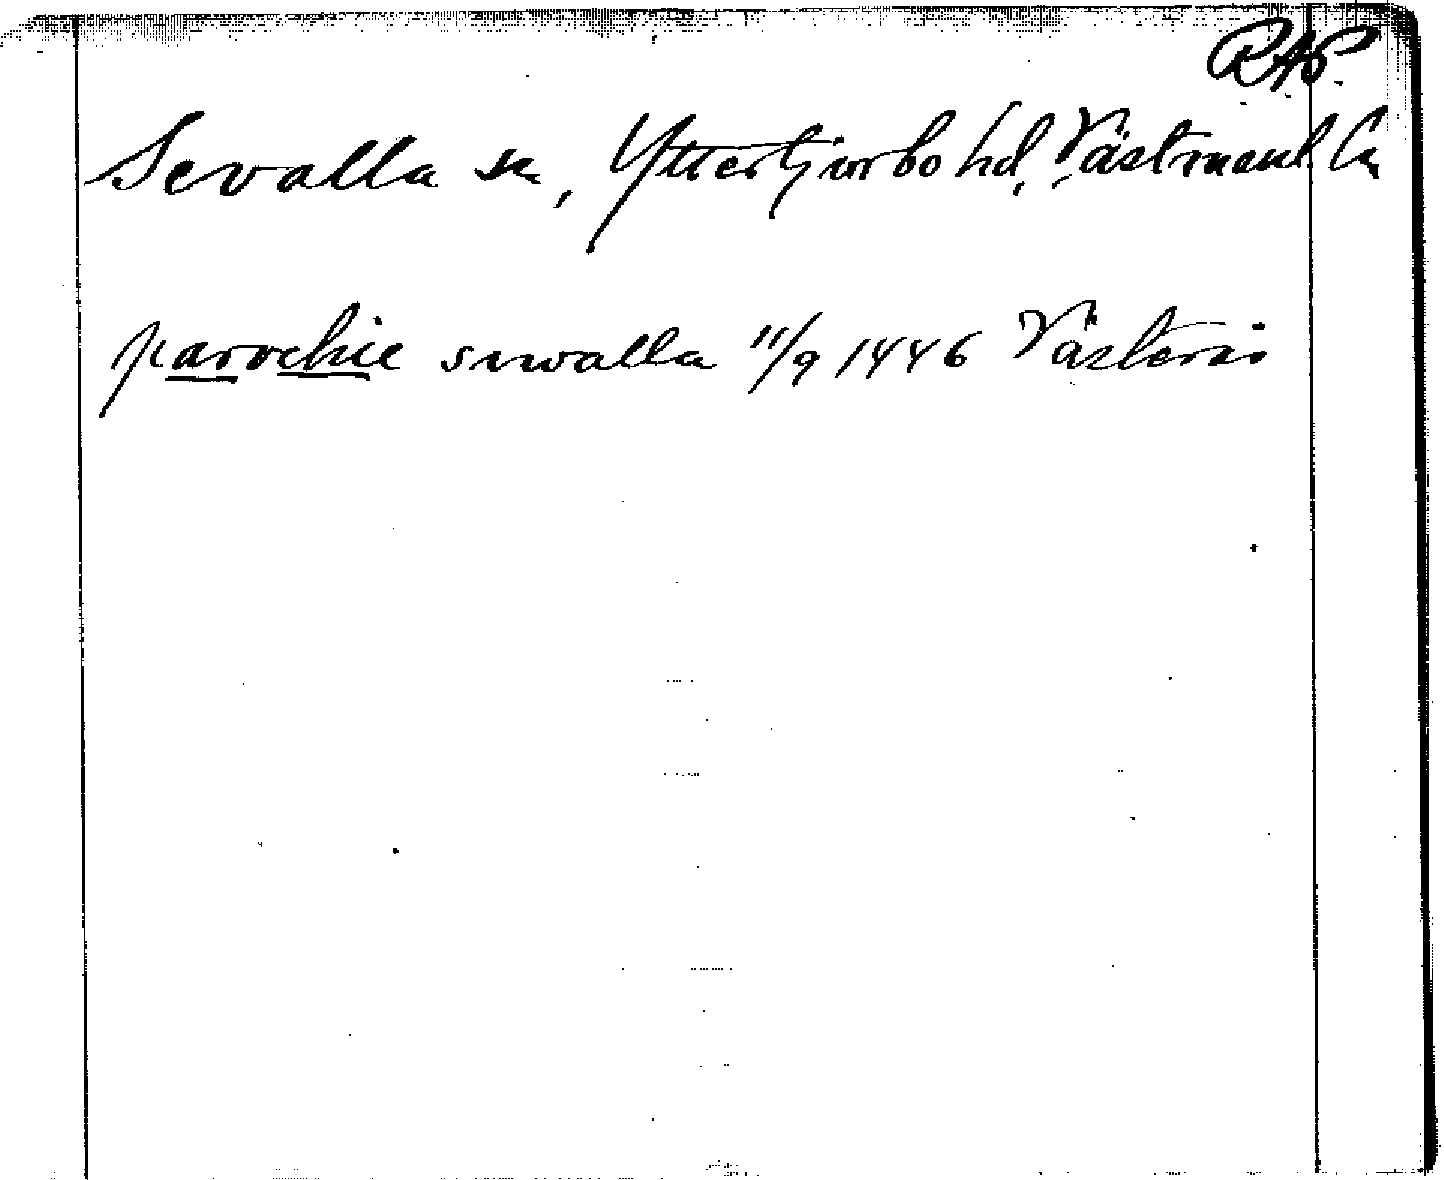 RAP.
Sevalla sn, Yttertjurbo hd, Västmanl. län
parochie swalla 11/9 1446 Västerås